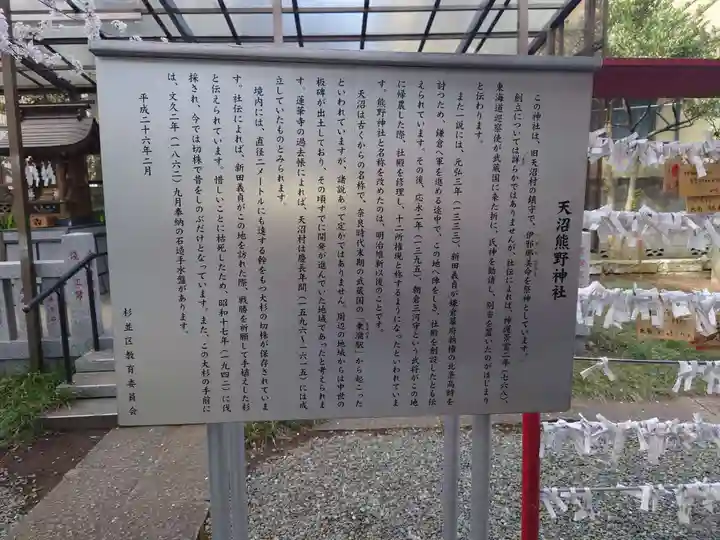 天沼熊野神社
この神社は、旧天沼村の鎮守で、伊邪那美命を祭神としています。
創立については詳らかではありませんが、社伝によれば、神護景雲二年(七六八)、
東海道巡察使が武蔵国に来た折に、氏神を勧請し、別当を置いたのがはじまり
と伝わります。
また一説には、元弘三年(一三三三)、新田義貞が鎌倉幕府執権の北条高時を
討つため、鎌倉へ軍を進める途中で、この地へ陣をしき、社殿を創設したとも伝
えられています。その後、応永二年(一三九五)、朝倉三河守という武将がこの地
に帰農した際、社殿を修理し、十二所権現と称するようになったといわれていま
す。熊野神社と名称を改めたのは、明治維新以後のことです。
天沼は古くからの名称で、奈良時代末期の武蔵国の「乗潴駅」から起こった
といわれていますが、諸説あって定かではありません。周辺の地域からは中世の
板碑が出土しており、その頃すでに開発が進んでいた地域であったと考えられま
す。蓮華寺の過去帳によれば、天沼村は慶長年間(一五九六〜一六一五)には成
立していたものとみられます。
境内には、直径二メートルにも達する幹をもつ大杉の切株が保存されていま
す。社伝によれば、新田義貞がこの地を訪れた際、戦勝を祈願して手植えした杉
と伝えられています。惜しいことに枯死したため、昭和十七年(一九四二)に伐
採され、今では切株で昔をしのぶだけとなっています。また、この大杉の手前に
は、文久二年(一八六二)九月奉納の石造手水盤があります。
平成二十六年二月
杉並区教育委員会